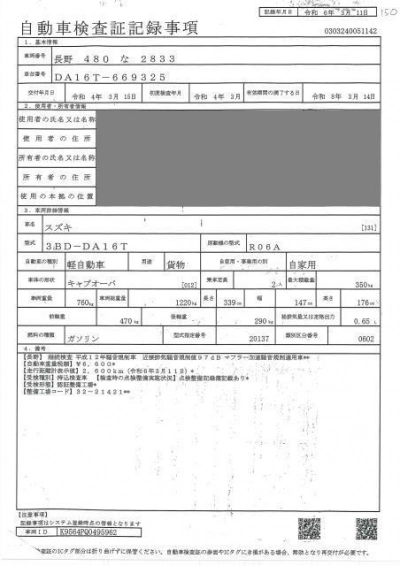 記録年月日 令和 6年 3月11日
150
自動車検査証記録事項
0303240051142
1．基本情報
車両番号 長野 480 な 2833
車台番号 DA16T-669325
交付年月日 令和 4年 3月15日 初度検査年月 令和 4年 3月 有効期間の満了する日 令和 8年 3月14日
2．使用者・所有者情報
使用者の氏名又は名称
使用者の住所
所有者の氏名又は名称
所有者の住所
使用の本拠の位置
3．車両詳細情報
車名 スズキ [131]
型式 3BD-DA16T 原動機の型式 R06A
自動車の種別 軽自動車 用途 貨物 自家用・事業用の別 自家用
車体の形状 キャブオーバ [012] 乗車定員 2人 最大積載量 350kg
車両重量 760kg 車両総重量 1220kg 長さ 339cm 幅 147cm 高さ 176cm
前軸重 470kg 後軸重 290kg 総排気量又は定格出力 0.65L
燃料の種類 ガソリン 型式指定番号 20137 類別区分番号 0602
4．備考
【長野】 継続検査 平成12年騒音規制車 近接排気騒音規制値97dB マフラー加速騒音規制適用車**
【自動車重量税額】¥6,600*
【走行距離計表示値】2,600km（令和6年3月11日）*
【受検種別】持込検査車 【検査時の点検整備実施状況】点検整備記録簿記載あり*
【受検形態】認証整備工場*
【整備工場コード】52-21421**
【注意事項】
記録事項はシステム登録時点の情報となります
車両ID K9564PQ0495962
検査証のICタグ部分は折り曲げずに保管ください。自動車検査証の券面やICタグにき損がある場合、無効となり再交付が必要です。